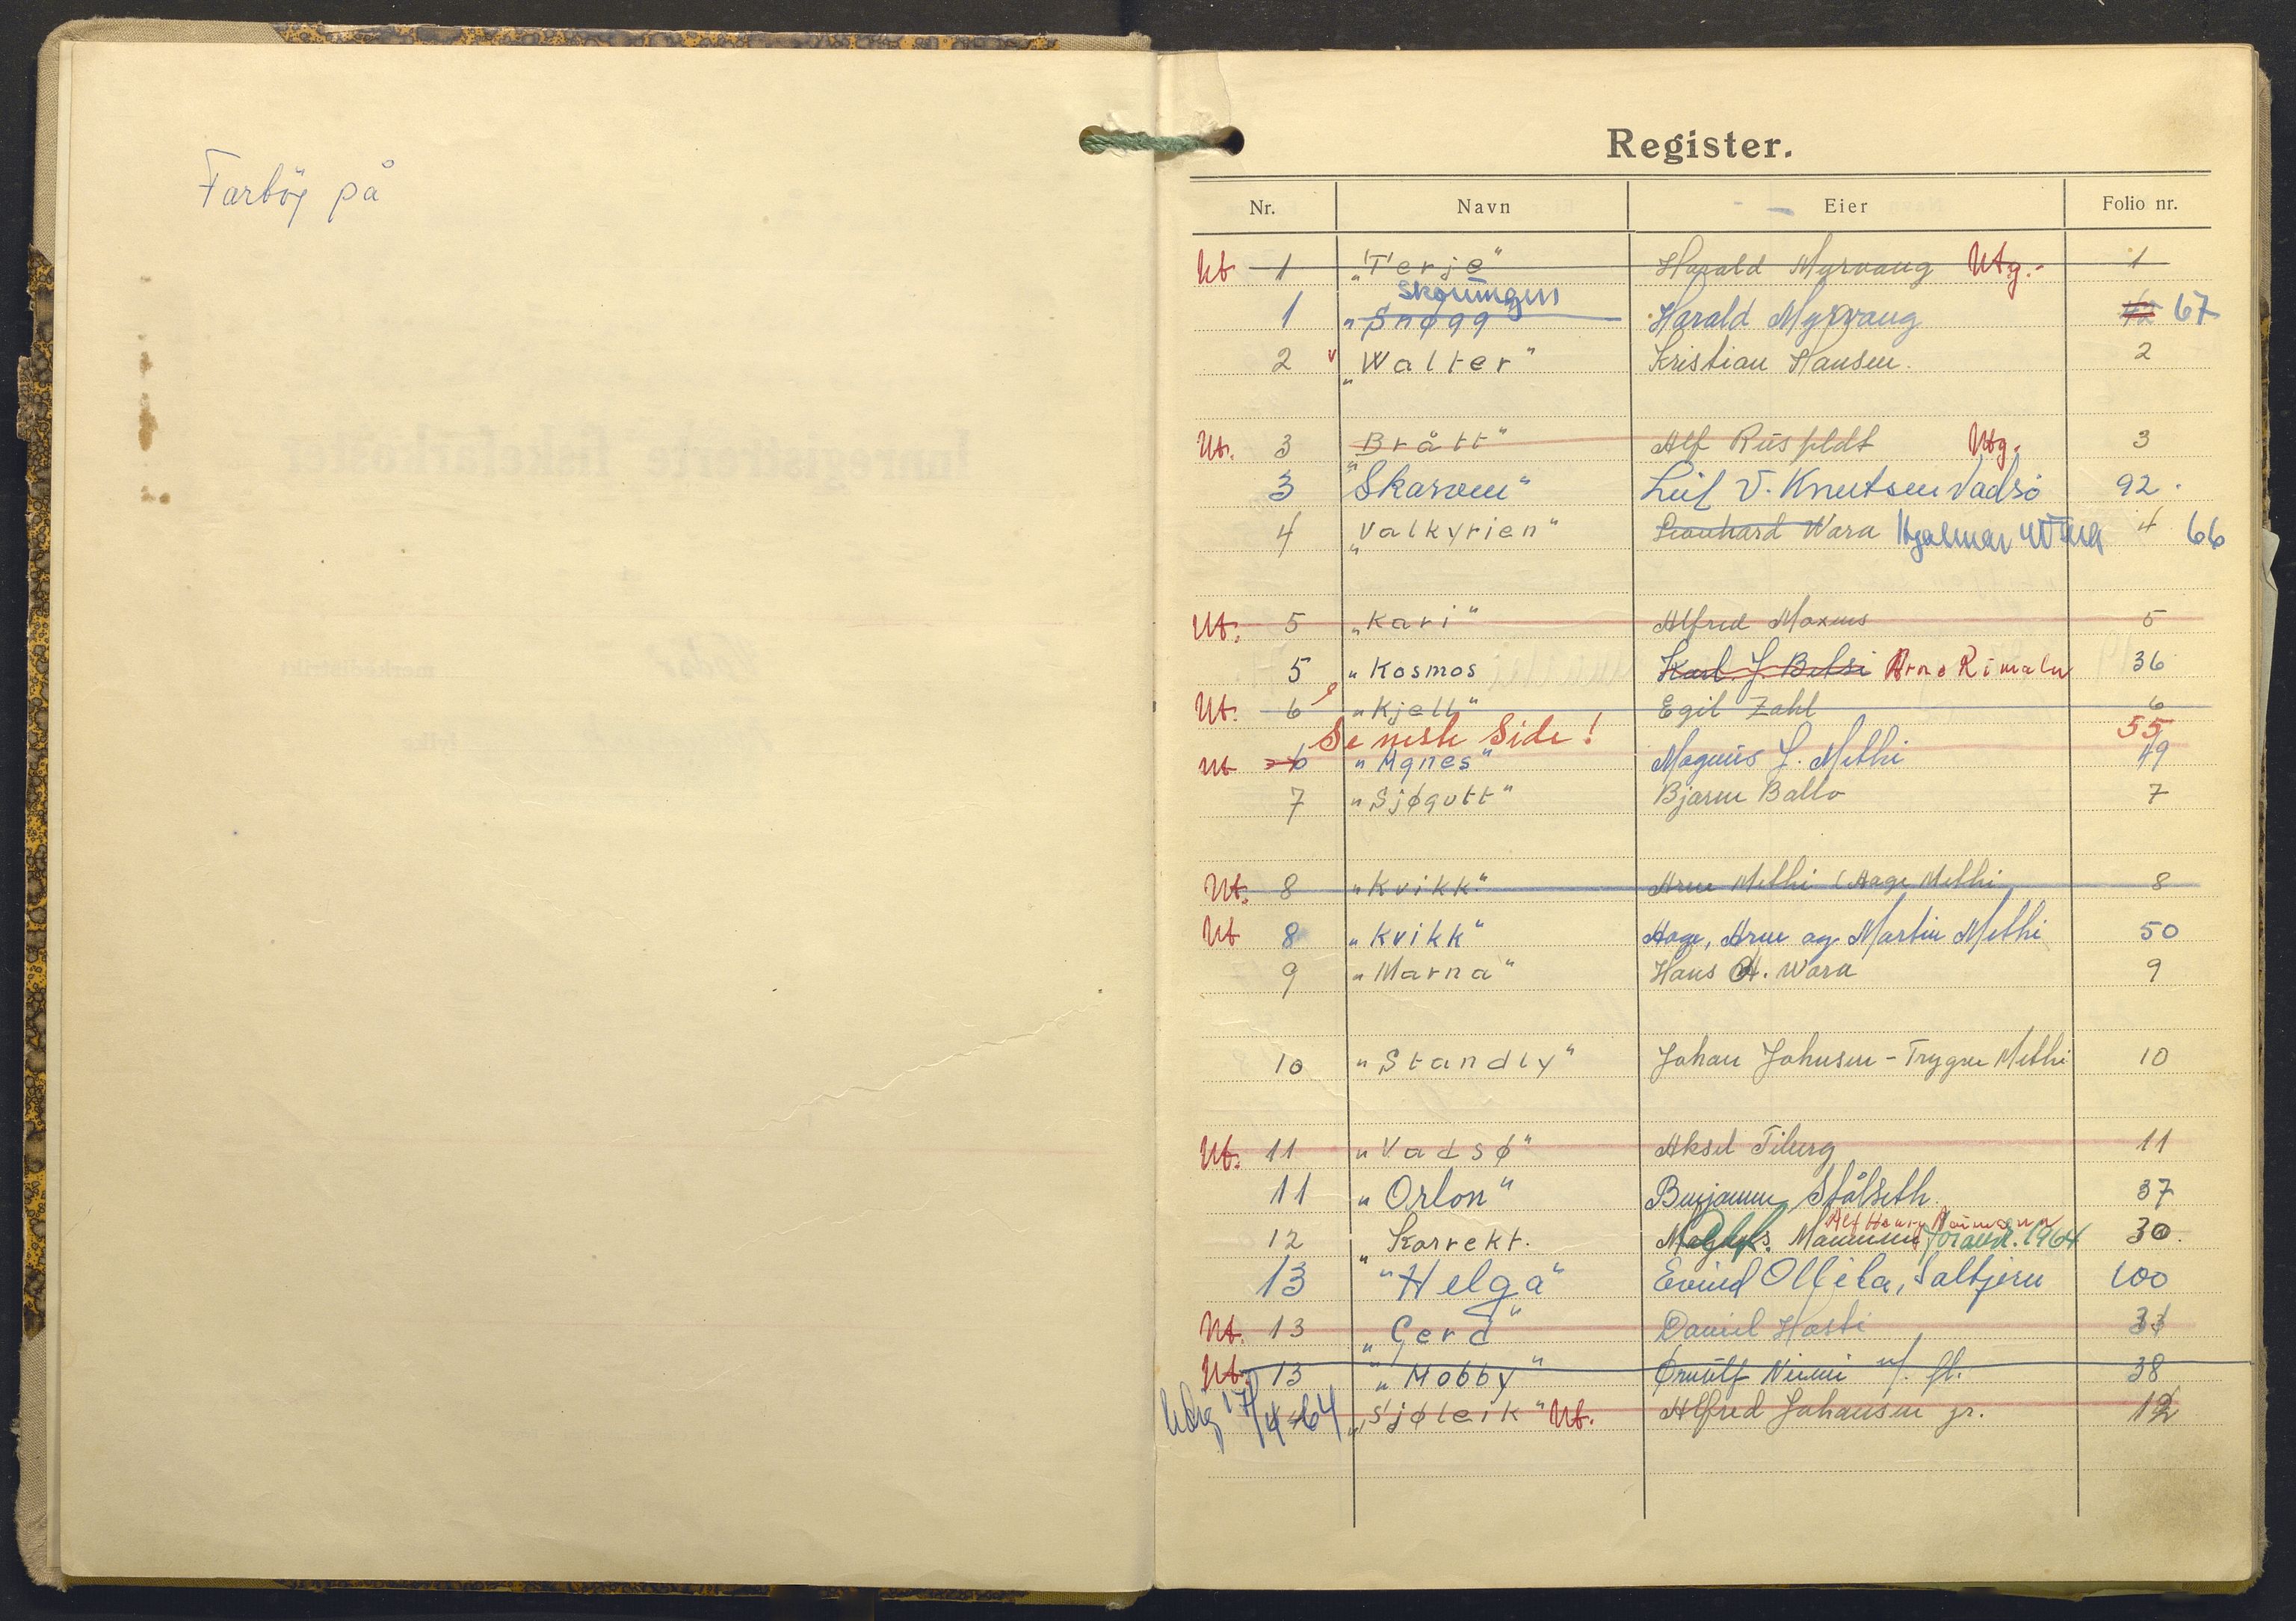 Fartöy på
Register.
Nr. Navn Eier Folio nr.
Ut 1 "Terje" Harald Myrvang Utg.- 1
Skarungen
1 "Snøgg Harald Myrvang 42 67
2 v "Walter" Kristian Hansen. 2
Ut. 3 "Brått" Alf Utg. 3
3 "Skarven" Leif V. Knutsen Vadsø 92.
4 "Valkyrien" Leonhard Wara Hjalmar Wara 4 66
Ut. 5 "Kari" Alfred 5
5 "Kosmos Karl J. Betsi Arne Rimala 36
Ut. 6 "Kjell" Egil Zahl 6
Se neste Side! 55
Ut 6 "Agnes" Magnus J. Methi 49
7 "Sjøgutt" Bjarne Ballo 7
Ut. 8 "Kvikk" Arne Methi (Aage Methi 8
Ut 8 "Kvikk" Aage, Arne og Martin Methi 50
9 "Marna" Hans A. Wara 9
10 "Standly" Johan Johnsen - Trygve Methi 10
Ut. 11 "Vadsø" Aksel Tiberg 11
11 "Orlon" Benjamin Stålseth. 37
Alf Henry
12 "Korrekt. forandr. 1964 30.
13 "Helga" Eivind Ollila, Saltjern 100
Ut. 13 "Gerd" Daniel Hasti 31
Ut. 13 "Mobby" Ørnulf Niemi m/. fl. 38
Utg 17/4-64 "Sjøleik" Ut. Alfred Johansen jr. 12